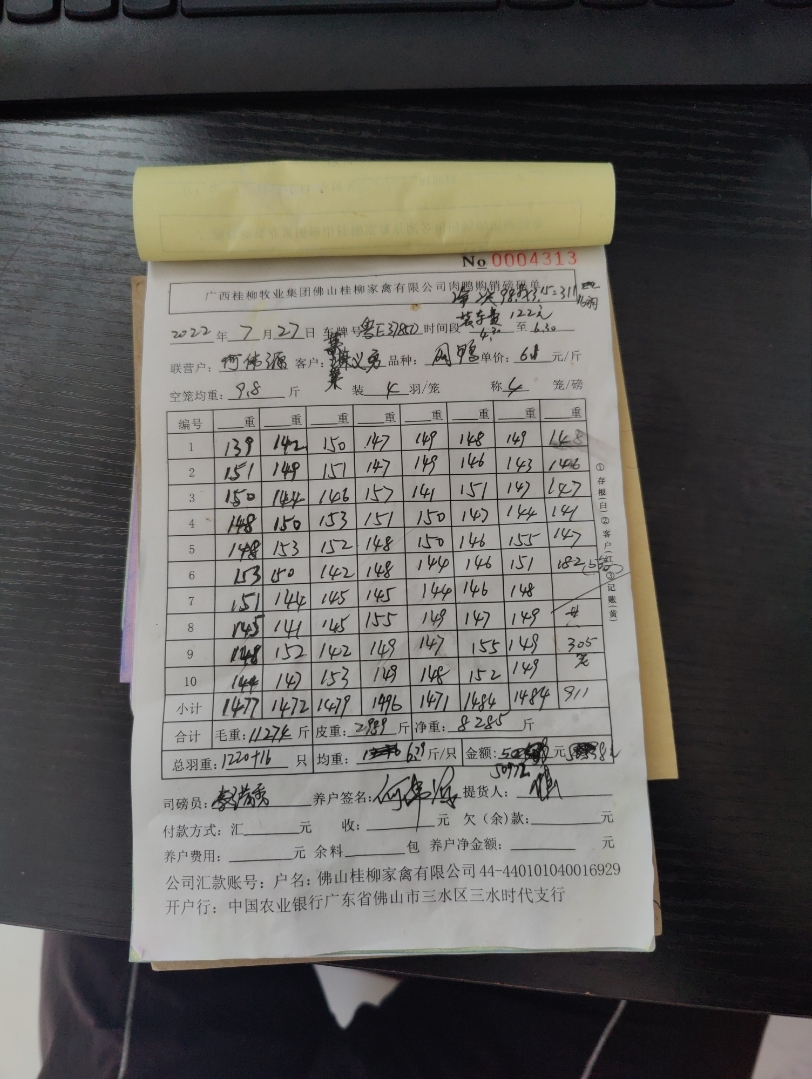 No 0004313
广西桂柳牧业集团佛山桂柳家禽有限公司肉鸭购销磅码单
98.8×3.15=311
装车费 122元
2022年7月27日 车牌号 粤E37850 时间段 4.30 至 6.30
联营户: 何伟源 客户: 义勇 品种: 网鸭 单价: 元/斤
空笼均重: 9.8 斤 装 4 羽/笼 称 4 笼/磅
编号 重 重 重 重 重 重 重 重
1 139 142 150 147 149 148 149 148
2 151 149 151 147 149 146 143 146
3 150 144 146 157 141 151 147 147
4 148 150 153 151 150 147 144 141
5 148 153 152 148 150 146 155 147
6 153 150 142 148 144 146 151 182(5笼)
7 151 144 145 145 144 146 148
8 145 141 145 155 149 147 149 共
9 148 152 142 149 147 155 149 305
10 144 147 153 149 148 152 149 笼
小计 1477 1472 1479 1496 1471 1484 1484 911
合计 毛重: 11274 斤 皮重: 2989 斤 净重: 8285 斤
总羽重: 1220+16 只 均重: 6.79 斤/只 金额: 元
50972
司磅员: 养户签名: 何伟源 提货人:
付款方式: 汇 元 收: 元 欠(余)款: 元
养户费用: 元 余料 包 养户净金额: 元
公司汇款账号: 户名: 佛山桂柳家禽有限公司 44-440101040016929
开户行: 中国农业银行广东省佛山市三水区三水时代支行
①存根(白)②客户(红)③记账(黄)